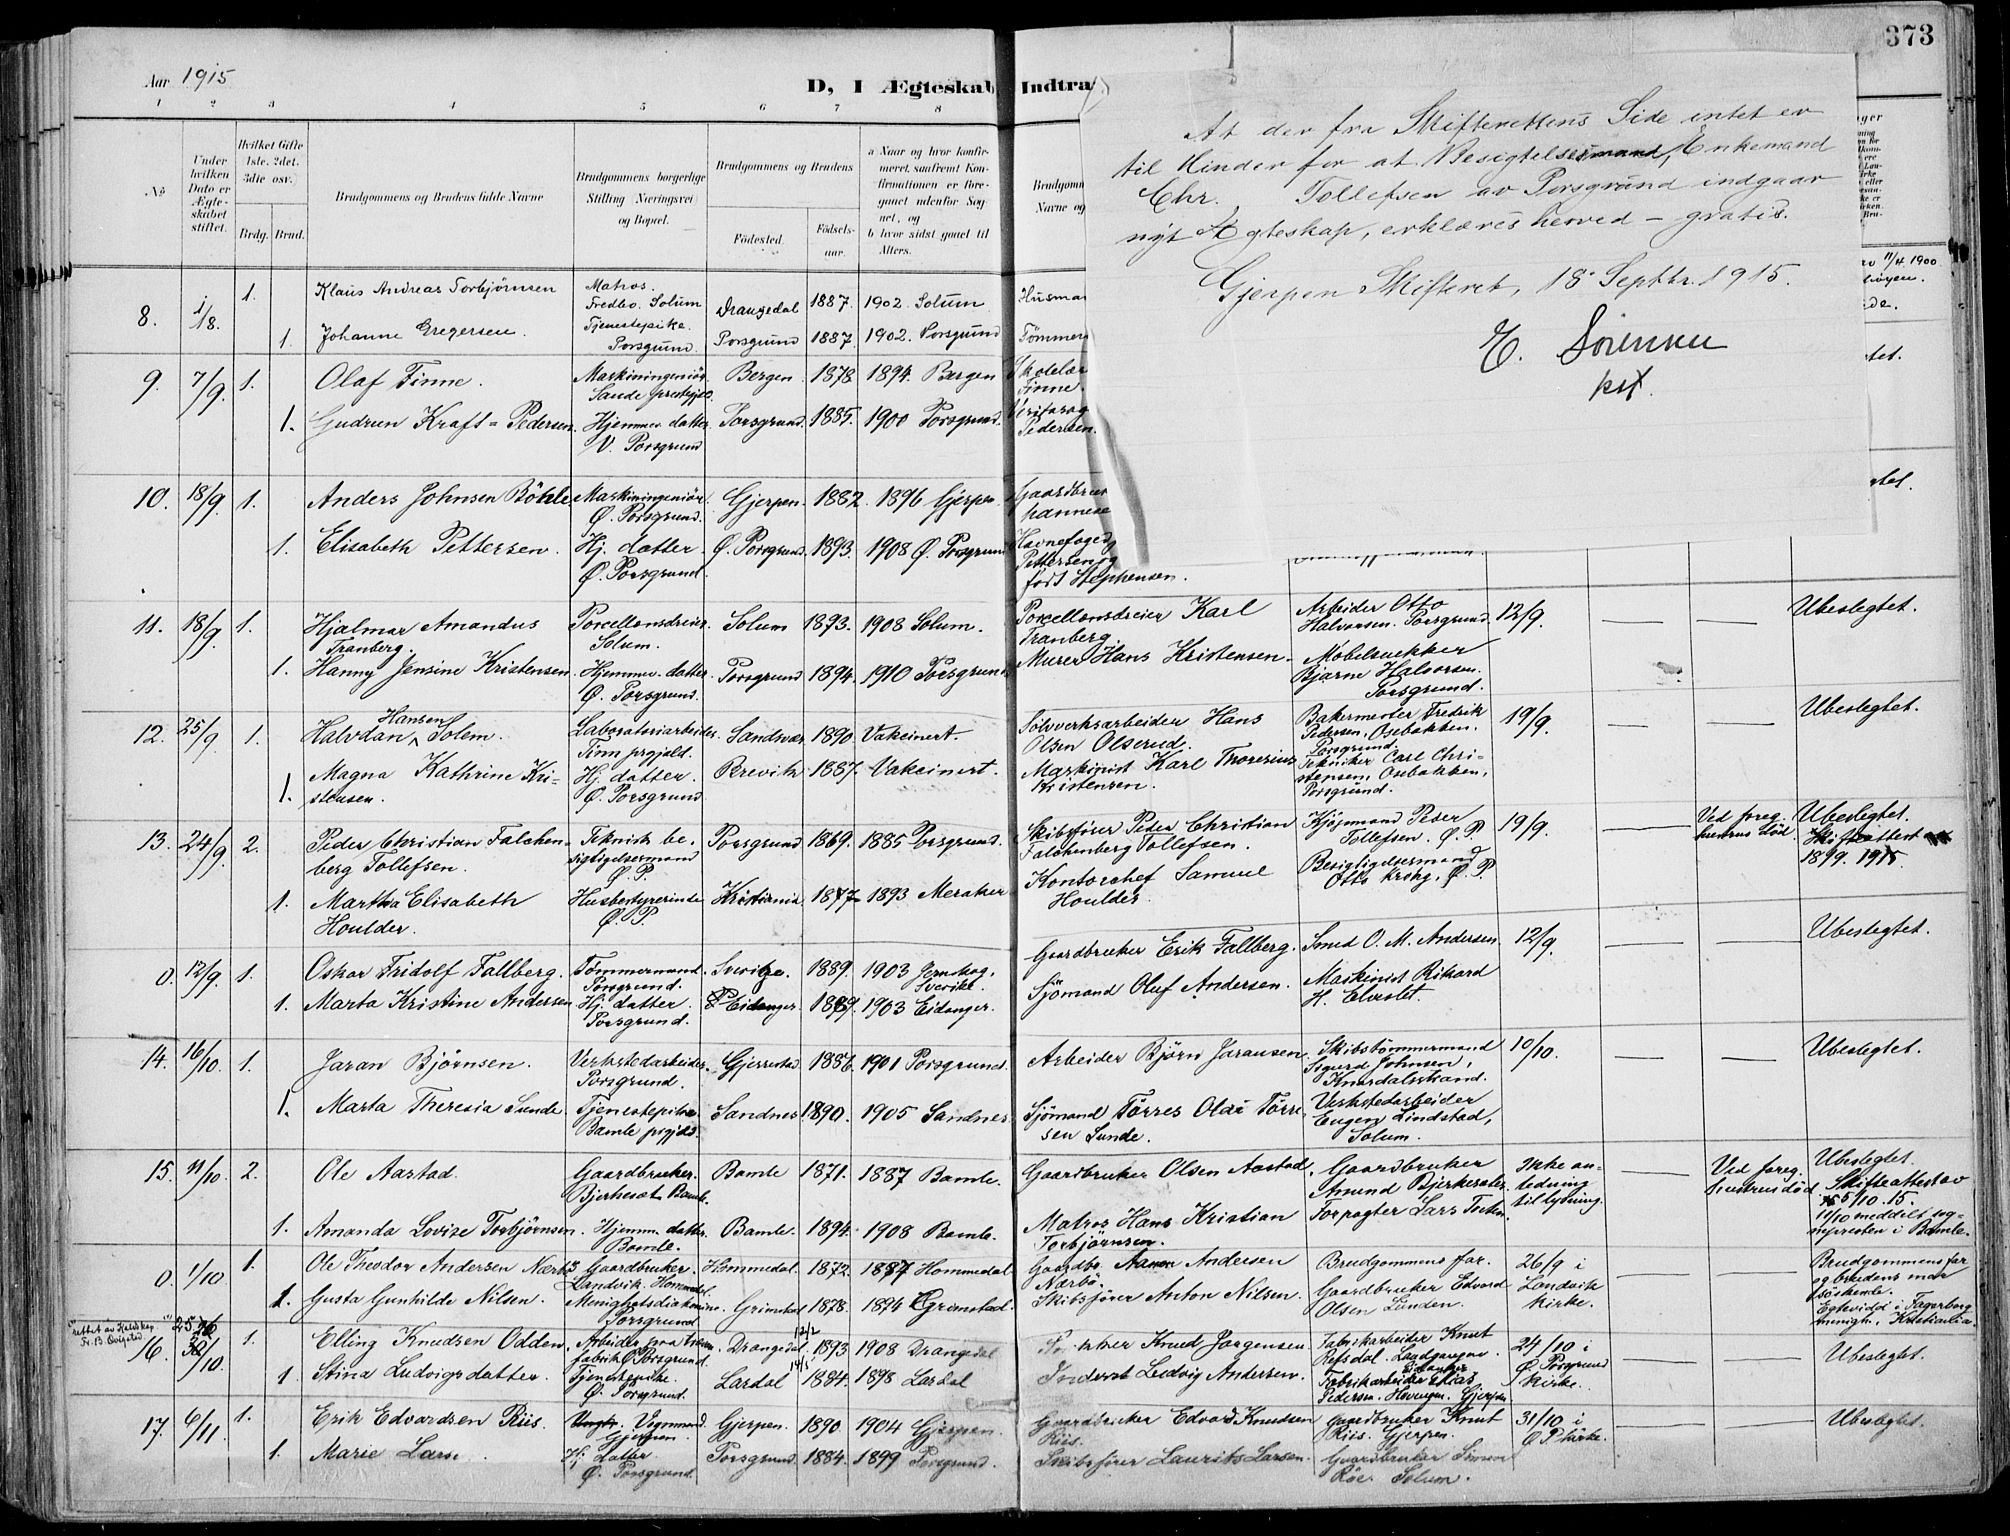 373
Aar 1915
D, I Ægteskab Indtra
1 2 3 4 5 6 7 8
No
Under hvilken Dato er Ægteskabet stiftet.
Hvilket Gifte 1ste, 2det, 3die osv.
Brdg. Brud.
Brudgommens og Brudens fulde Navne
Brudgommens borgerlige Stilling Næringsvei og Bopæl.
Brudgommens og Brudens
Fødested. Fødselsaar.
a Naar og hvor konfirmeret, samt
b hvor sidst gaaet til Alters.
Brudgomm
Navne og
At der fra Skifterettens Side intet er
til Hinder for at Besigtelsesmand, Enkemand
Chr. Tollefsen av Porsgrund indgaar
nyt Ægteskap, erklæres herved – gratis.
Gjerpen Skifteret, 18 Septbr. 1915.
E. Sørensen
kst.
8. 1/8. 1. Klaus Andreas Torbjørnsen Matros. Fredbo. Solum Drangedal 1887. 1902. Solum Husma
1. Johanne Gregersen. Tjenestepike. Porsgrund. Porsgrund 1887. 1902. Porsgrund Tømmer
9. 7/9. 1. Olaf Finne. Maskiningeniør. Sande prestegjld. Bergen. 1878. 1894. Bergen Skolelær Finne.
1. Gudrun Kraft-Pedersen. Hjemmev. datter V. Porsgrund Porsgrund. 1885. 1900 Porsgrund. Pedersen.
10. 18/9. 1. Anders Johnsen Böhle Maskiningeniør. Ø. Porsgrund. Gjerpen. 1882. 1896 Gjerpen. Gaardbruk
1. Elisabeth Pettersen. Hj. datter. Ø. Porsgrund. Ø. Porsgrund. 1893. 1908 Ø. Porsgrund Havnefoged Pettersen og født Stephensen.
11. 18/9. 1. Hjalmar Amandus Tranberg. Porcellænsdreier. Solum. Solum 1893. 1908 Solum. Porcellænsdreier Karl Tranberg. Arbeider Otto Halvorsen. Porsgrund. 12/9. Ubeslegtet.
1. Hanny Jensine Kristensen. Hjemmev. datter. Ø. Porsgrund. Porsgrund 1894. 1910 Porsgrund Murer Hans Kristensen. Møbelsnekker Bjarne Halvorsen. Porsgrund.
12. 25/9. 1. Halvdan Hansen Solem. Laboratoriearbeider. Sandsvær 1890. Vakcinert. Sølvverksarbeider Hans Olsen Olserud. Bakermester Fredrik Pedersen, Osebakken. Porsgrund. 19/9. Ubeslegtet.
1. Magna Kathrine Kristensen. Hj. datter. Ø. Porsgrund. Brevik 1887. Vakcinert. Maskinist Karl Thoresius Kristensen. Tekniker Carl Christensen, Osebakken, Porsgrund.
13. 24/9. 2. Peder Christian Falchenberg Tollefsen. Teknisk besigtigelsesmand Ø. P. Porsgrund 1869. 1885 Porsgrund. Skibsfører Peder Christian Falchenberg Tollefsen. Kjøpmand Peder Tollefsen. Ø. P. 19/9. Ved foreg. hustrus död. Ubeslegtet. Skifteattest 18/9. 1915
1. Martha Elisabeth Houlder. Husbestyrerinde Ø. P. Kristiania. 1877. 1893 Meraker Kontorchef Samuel Houlder. Besigtigelsesmand Otto Krohg, Ø. P.
0. 12/9. 1. Oskar Fridolf Fallberg. Tømmermand. Porsgrund. Sverige. 1889. 1903 Jernskog. Sverike. Gaardbruker Erik Fallberg. Smed O. M. Andersen. 12/9. Ubeslegtet.
1. Marta Kristine Andersen Hj. datter. Porsgrund. Eidanger. 1889. 1903 Eidanger. Sjömand Oluf Andersen. Maskinist Rikard H. Elveslet.
14. 16/10. 1. Jaran Bjørnsen. Verkstedarbeider. Porsgrund. Gjerrestad. 1886. 1901 Porsgrund. Arbeider Björn Jaransen. Skibstømmermand Sigurd Johnsen, Knardalsstrand. 10/10. Ubeslegtet.
1. Marta Theresia Sunde Tjenestepike Bamle prgjld. Sandnes 1890. 1905 Sandnes Sjömand Tørres Olai Tørresen Sunde. Verkstedarbeider Eugen Lindstad, Solum.
15. 11/10. 2. Ole Aastad. Gaardbruker. Bjerkeset Bamle. Bamle 1871. 1887 Bamle. Gaardbruker Olsen Aastad, Gaardbruker Amund Bjerkeseter. Ikke anledning til lysning. Ved foreg. hustrus död Ubeslegtet. Skifteattest av 5/10. 15. 11/10 meddelt sognepresten i Bamle.
1. Amanda Lovise Torbjørnsen. Hjemmev. datter. Bamle. Bamle. 1894. 1908 Bamle. Matros Hans Kristian Torbjørnsen. Forpagter Lars
0. 1/10. 1. Ole Theodor Andersen Nærbö Gaardbruker. Landvik, Hommedal. Hommedal. 1872. 1887 Hommedal Gaardbr. Aanon Andersen Nærbö. Brudgommens far. 26/9 i Landvik kirke. Brudgommens far og brudens mor søskende.
1. Gusta Gunhilde Nilsen. Menighetsdiakonisse. Porsgrund Grimstad 1878. 1894 Grimstad. Skibsfører Anton Nilsen. Gaardbruker Edvard Olsen Lunden. Egtevidd i Fagerborg menigh., Kristiania.
16. /10. 1. Elling Knudsen Odden. Arbeider Porsgrund. Drangedal 12/2 1893 1908 Drangedal Knud Jørgensen Fabrikarbeider Knut Refsdal. 24/10 i Ø. Porsgrund kirke. Ubeslegtet.
1. Stina Ludvigsdatter. Tjenestepike. Ø. Porsgrund. Lardal 1884 1898 Lardal Inderst Ludvig Andersen. Fabrikarbeider Elias Pedersen. Gjerpen
17. 6/11. 1. Erik Edvardsen Riis. Vognmand. Gjerpen. Gjerpen. 1890. 1904 Gjerpen. Gaardbruker Edvard Knudsen Riis. Gaardbruker Knut Riis. Gjerpen. 31/10 i Ø P kirke. Ubeslegtet.
1. Marie Larse Hj. datter Ø. Porsgrund. Porsgrund. 1884. 1899 Porsgrund. Skibsfører Laurits Larsen. Gaardbruker Simon Röe. Solum.